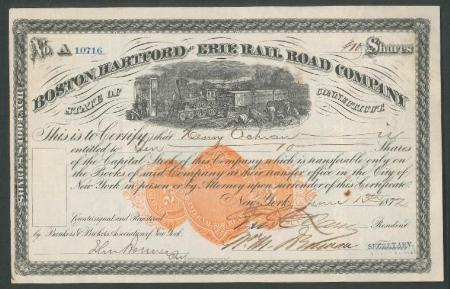 No. A 10716 Shares
BOSTON, HARTFORD AND ERIE RAIL ROAD COMPANY
STATE OF CONNECTICUT.
SHARES $100 EACH
This is to Certify, that Henry is
entitled to Ten 10 Shares
of the Capital Stock of this Company which is transferable only on
the Books of said Company at their transfer office in the City of
New York in person or by Attorney upon surrender of this Certificate.
New York, June 13th 1872
Countersigned and Registered
President
by Bankers & Brokers Association of New York.
SECRETARY.